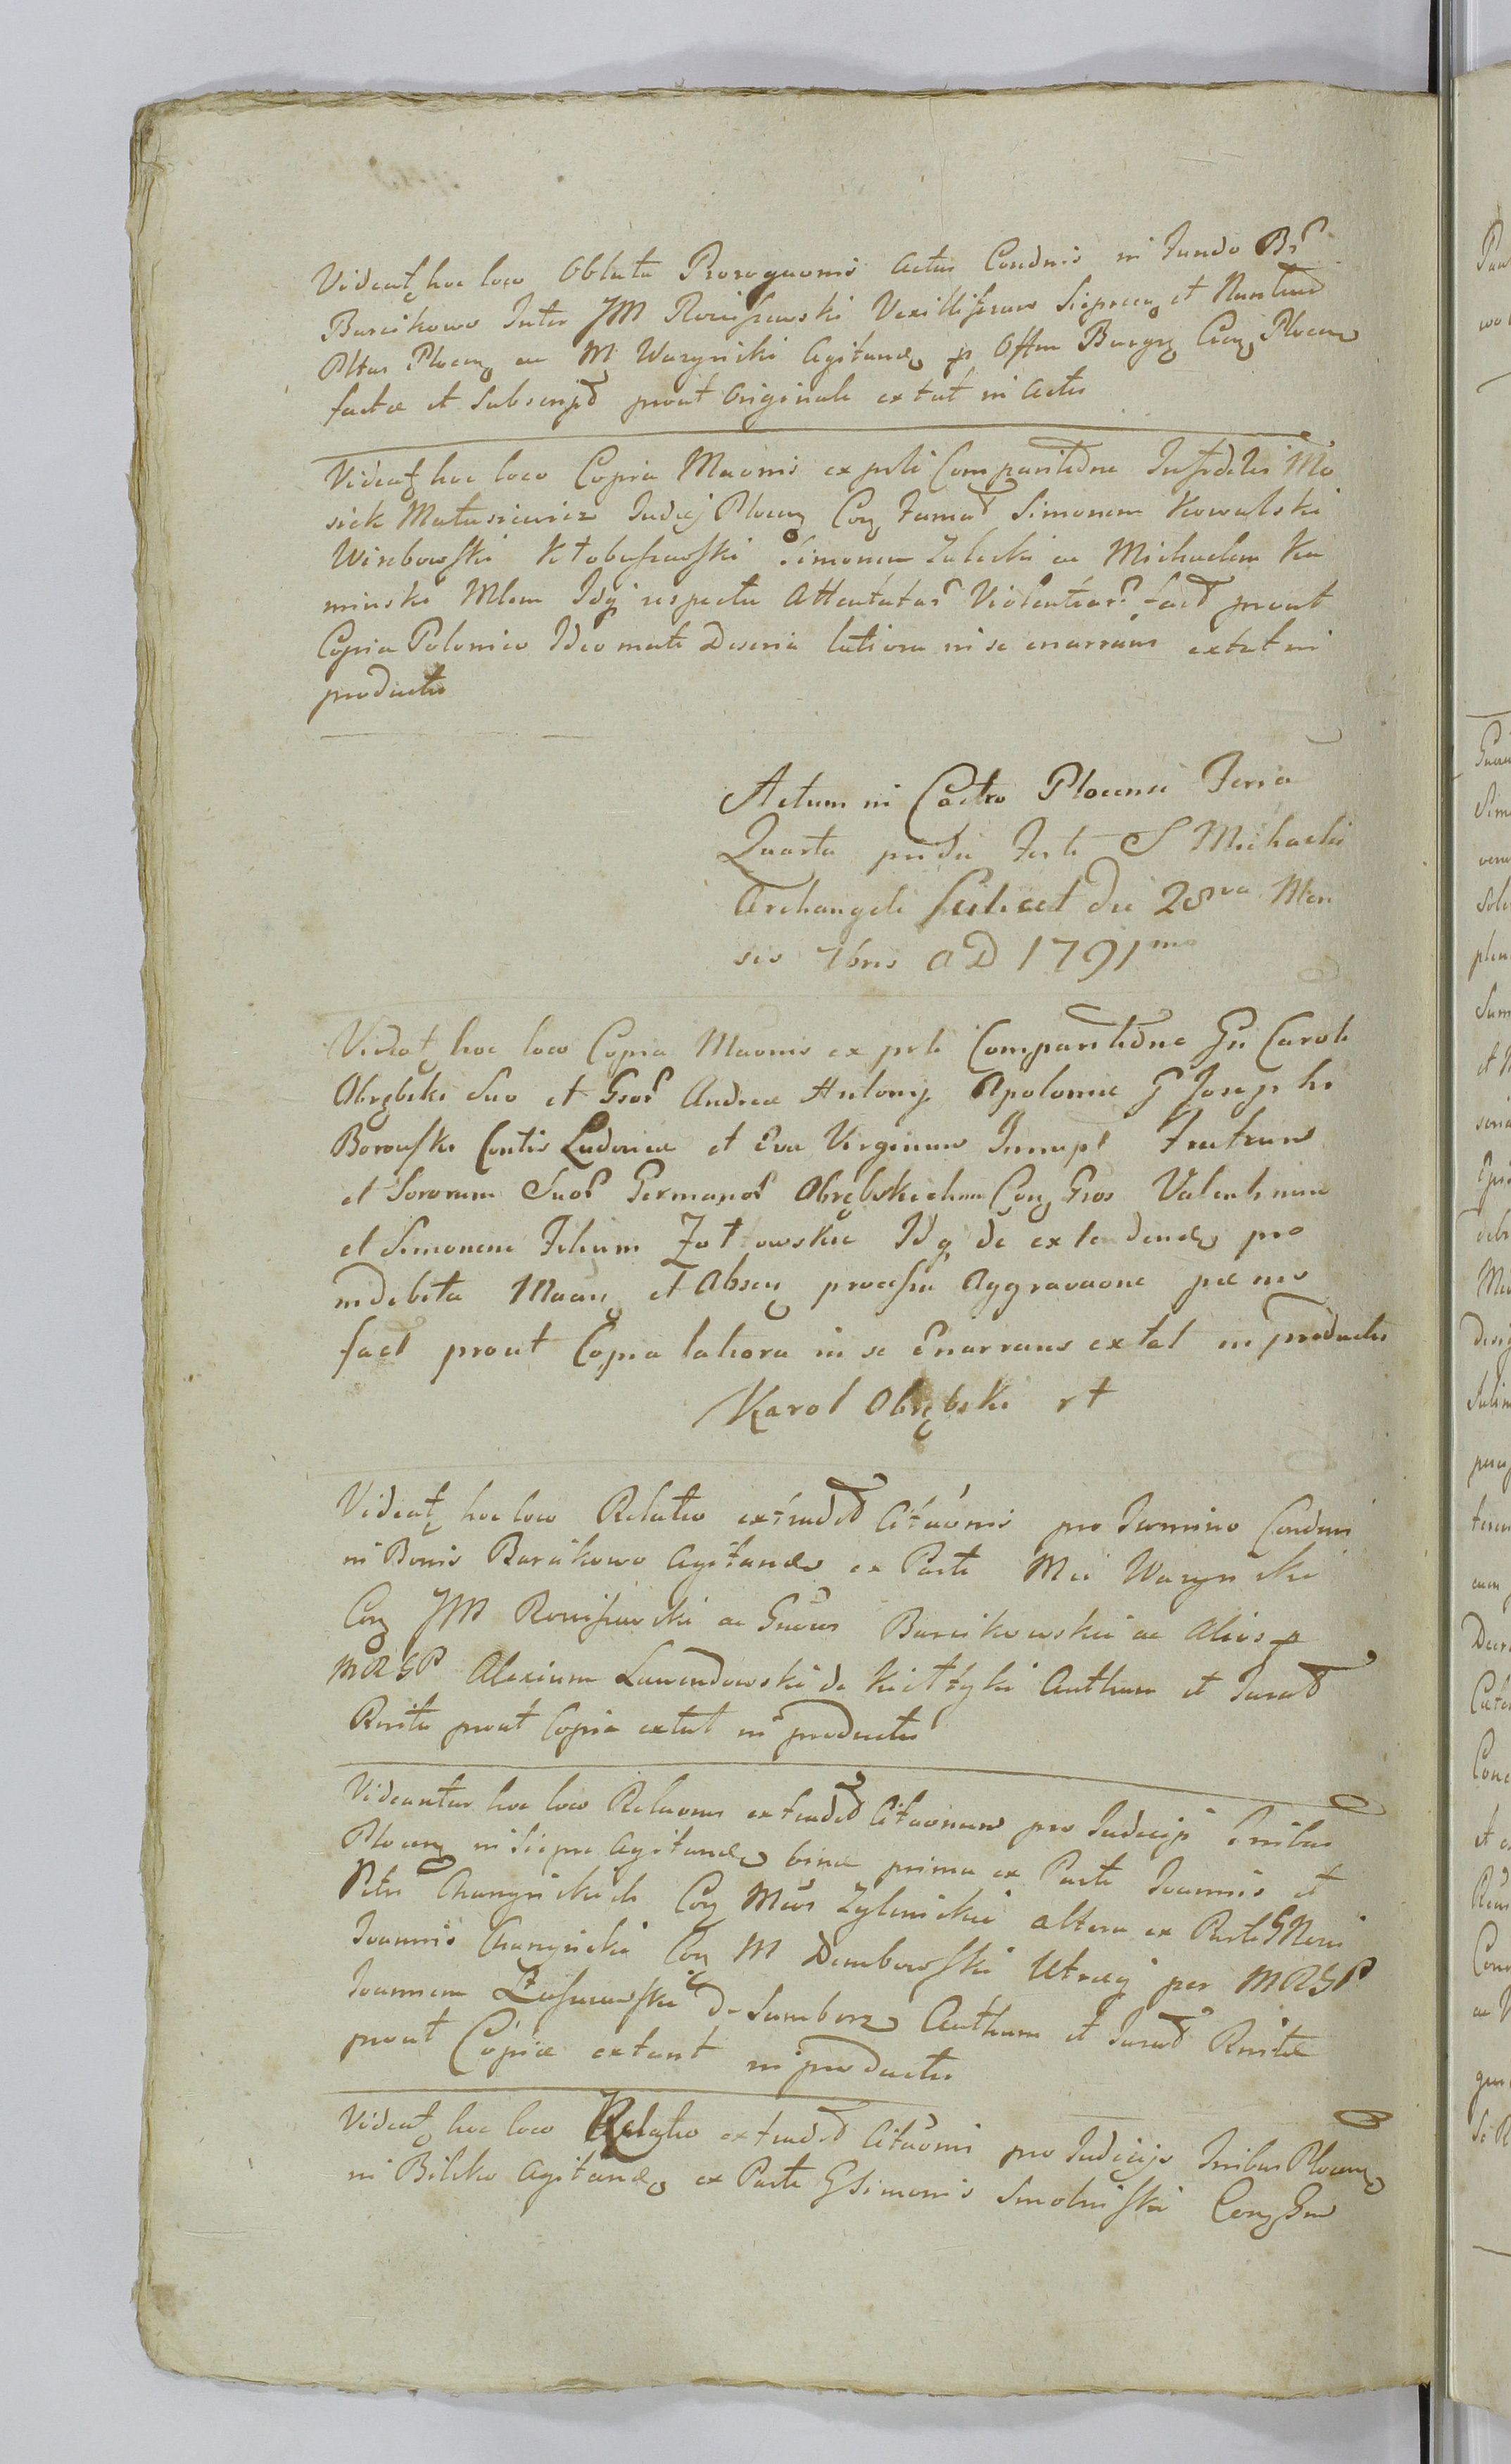 Videat hoc loco Oblata Prorogaonis actus Condnis in Fundo Br
Barcikowo Inter JM Rociszewski Vexilliferum Sieprcen et Nuntium
Pltus Plocen ac M Wazynski Agitand p Offm Burgr Cien Plocen
factæ et Subscript prout Originale extat in Actis
Videat hoc loco Copia Maonis ex prli Comparitidne Infidelis Mo
siek Matusiewicz Judej Plocen Con Famat Simonem Kowalski
Wirzbowski Kłobuszewski Simonem Zalecki ac Michaelem Ka
minski Mlem Idq respectu Attentatar Violentiar fact prout
Copia Polonico Ideomate Deseria latiora in se enarrans extat in
productis
Actum in Castro Plocensi Feria
Quarta pridie Festi S Michaelis
Archangeli Scilicet die 28va Men
sis 7bris AD 1791mo
Videat hoc loco Copia Maonis ex prli Comparitidne Gsi Caroli
Obrębski Suo et Gsor Andreæ Antonij Apoloniæ G Josephi
Borowski Contis Ludovicæ et Eva Virginum Innupt Fratrum
et Sororum Suor Germanor Obrębskichmu Con Gsos Valentinum
et Simonem Filium Zołtowskie Idq de extendend pro
indebita Maan et Absen processu Aggravaone pænis
fact prout Copia latiora in se Enarrans extat in productis
Karol Obrębski rt
Videat hoc loco Relatio extradit Citaonis pro Termino Condnis
in Bonis Barcikowo Agitando ex Parte Mci Wazynski
Con JM Rociszewski ac Gneros Barcikowskie ac Alios p
MRGP Alexium Lawendowski de Kiełtyki Authum et Jurat
Rnita prout Copia extat in productis
Videantur hoc loco Relaones extradit Citaonum pro Judicijs Tnibus
Plocen in Siepre Agitand binæ prima ex Parte Joannis et
Petri Chanynskich Con Meos Zylinskie altera ex Parte G Nseri
Joannis Chanynski Con M Dembowski Utraq per MRGP
Joannem de Szumborz Authum et Jurat Rnitæ
prout Copiæ extant in productis
Videat hoc loco Relatio extradit Citaonis pro Judicijs Tnibus Plocen
in Bilsko Agitand ex Parte G Simonis Smolinski Con Gsu